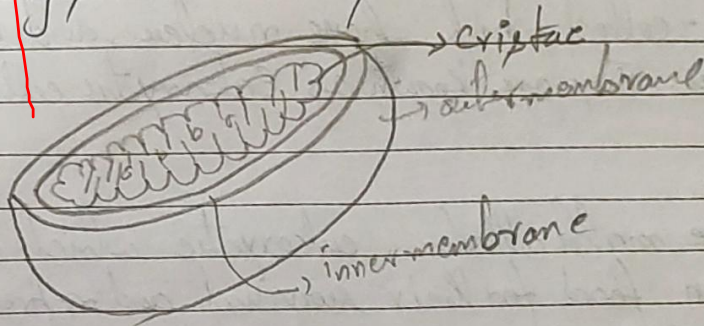 criptae
outermembrane
innermembrane